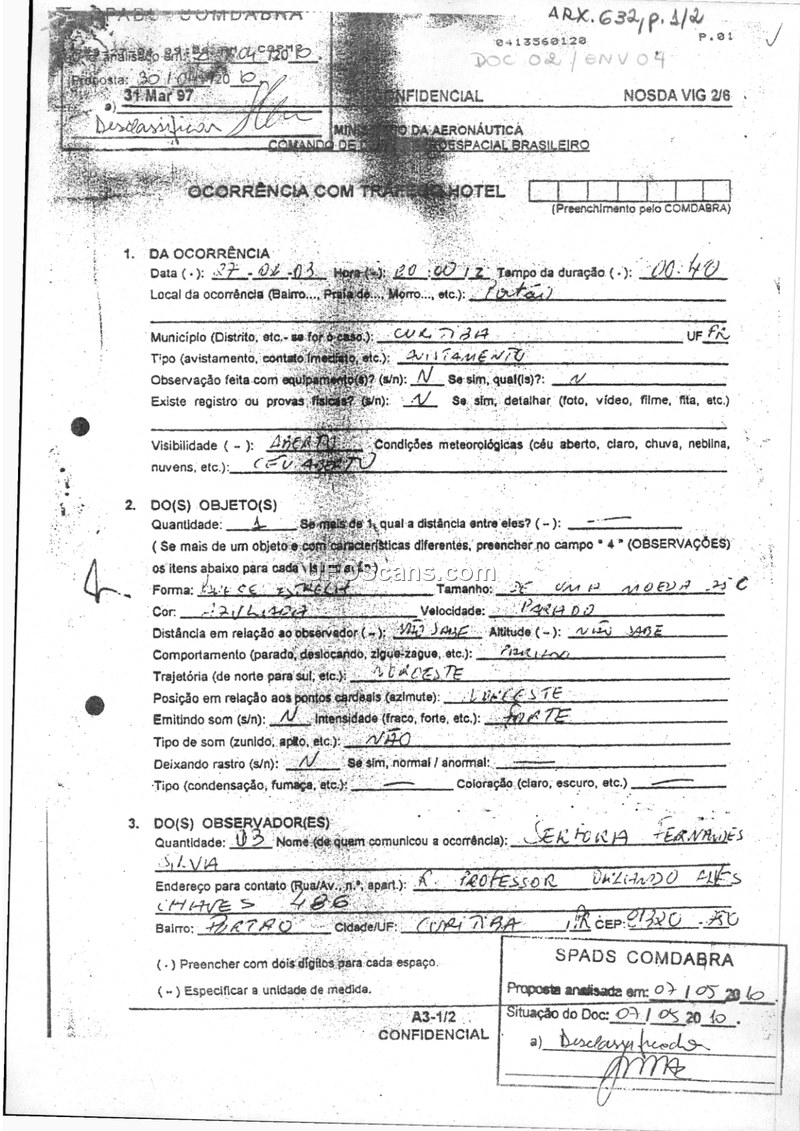 SPADS COMDABRA
ARX. 632, p. 1/2
0413560120
P.01
DOC 02 / ENV 04
Proposta: 30/0 20 10
31 Mar 97
CONFIDENCIAL
NOSDA VIG 2/6
a)
Desclassificar
MINISTÉRIO DA AERONÁUTICA
COMANDO DE AEROESPACIAL BRASILEIRO
OCORRÊNCIA COM TRÁFEGO HOTEL
(Preenchimento pelo COMDABRA)
1. DA OCORRÊNCIA
Data ( . ): 27 - 02 - 03 Hora ( - ): 20:00 / Z Tempo da duração ( . ): 00:40
Local da ocorrência (Bairro..., Praia de..., Morro..., etc.): Portão
Município (Distrito, etc.- se for o caso.): CURITIBA UF PR
Tipo (avistamento, contato imediato, etc.): AVISTAMENTO
Observação feita com equipamento(s)? (s/n): N Se sim, qual(is)?: N
Existe registro ou provas físicas? (s/n): N Se sim, detalhar (foto, vídeo, filme, fita, etc.)
Visibilidade ( – ): ABERTO Condições meteorológicas (céu aberto, claro, chuva, neblina,
nuvens, etc.): CÉU ABERTO
2. DO(S) OBJETO(S)
Quantidade: 1 Se mais de 1, qual a distância entre eles? ( – ): —
( Se mais de um objeto e com características diferentes, preencher no campo " 4 " (OBSERVAÇÕES)
os itens abaixo para cada
UFOScans.com
Forma: ESTRELA Tamanho: DE UMA MOEDA 25 C
Cor: AZULADA Velocidade: PARADO
Distância em relação ao observador ( – ): NÃO SABE Altitude ( – ): NÃO SABE
Comportamento (parado, deslocando, zigue-zague, etc.): PARADO
Trajetória (de norte para sul, etc.): NOROESTE
Posição em relação aos pontos cardeais (azimute): NOROESTE
Emitindo som (s/n): N Intensidade (fraco, forte, etc.): FORTE
Tipo de som (zunido, apito, etc.): NÃO
Deixando rastro (s/n): N Se sim, normal / anormal: —
Tipo (condensação, fumaça, etc.): — Coloração (claro, escuro, etc.) —
3. DO(S) OBSERVADOR(ES)
Quantidade: 03 Nome (de quem comunicou a ocorrência): SERTORIA FERNANDES
SILVIA
Endereço para contato (Rua/Av., n.º, apart.): R. PROFESSOR ORLANDO ALVES
CHAVES 486
Bairro: PORTÃO Cidade/UF: CURITIBA PR CEP:
( . ) Preencher com dois dígitos para cada espaço.
( – ) Especificar a unidade de medida.
A3-1/2
CONFIDENCIAL
SPADS COMDABRA
Proposta analisada em: 07 / 05 20 10
Situação do Doc: 07 / 05 20 10.
a) Desclassificado